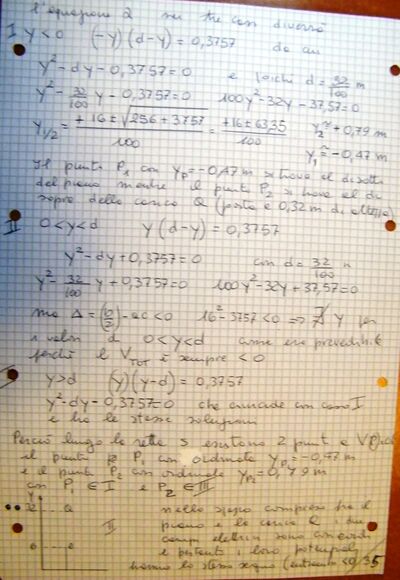 l'equazione 2 nei tre casi diverrà
I y<0 (-y)(d-y) = 0,3757 da cui
y² - dy - 0,3757=0 e poiché d = 32/100 m
y² - 32/100 y - 0,3757=0 100y² - 32y - 37,57=0
y1/2 = +16 ± √256+3757 / 100 = +16 ± 63,35 / 100 y2 ≅ +0,79 m
y1 ≅ -0,47 m
Il punto P1 con yp = -0,47 m si trova al di sotto
del piano mentre il punto P2 si trova al di
sopra della carica Q (posta a 0,32 m di altezza)
II 0<y<d y(d-y) = 0,3757
y² - dy + 0,3757=0 con d = 32/100 m
y² - 32/100 y + 0,3757=0 100y² - 32y + 37,57=0
ma Δ = (b/2)² - ac <0 16² - 3757 <0 ⇒ ∄ y per
i valori di 0<y<d come era prevedibile
perché il VTOT è sempre <0
y>d (y)(y-d) = 0,3757
y² - dy - 0,3757=0 che coincide con caso I
e ho le stesse soluzioni
Perciò lungo la retta s esistono 2 punti a V(P)=0
il punto P1 con ordinata yP1 = -0,47 m
e il punto P2 con ordinata yP2 = 0,79 m
con P1 ∈ I e P2 ∈ III
y
nello spazio compreso fra il
piano e la carica Q i due
II
campi elettrici sono concordi
e pertanto i loro potenziali
hanno lo stesso segno (entrambi <0)
35